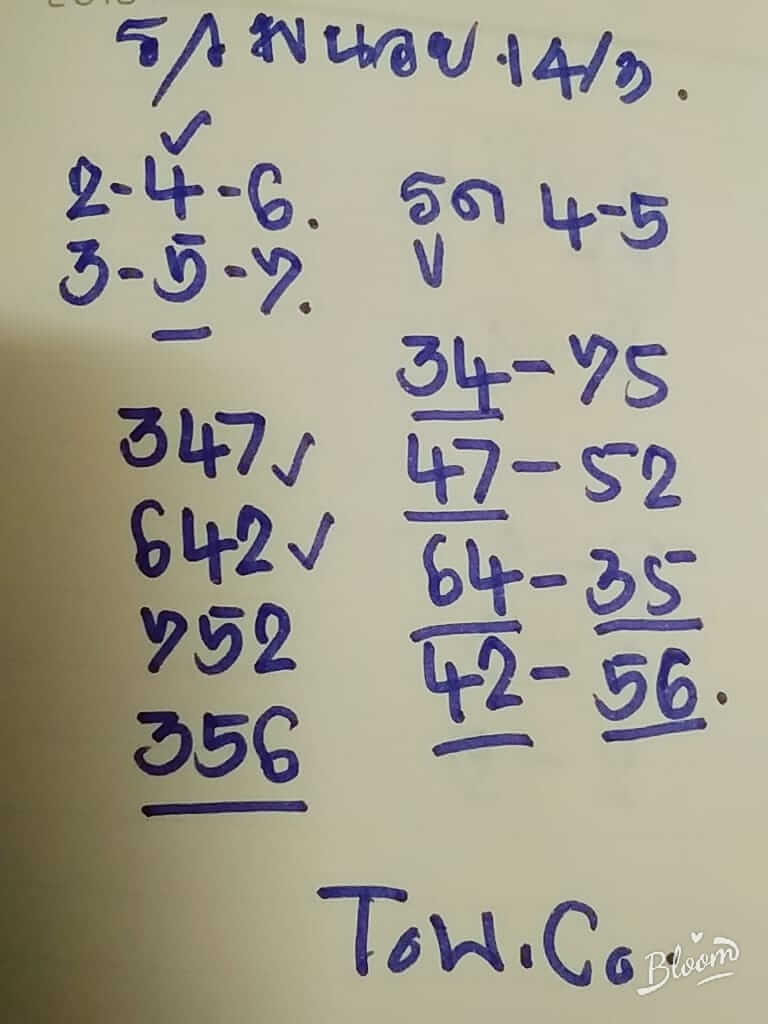 ร/ว พนอย .14/3.
2-4-6.
3-5-7.
รูด 4-5
347
642
752
356
34-75
47-52
64-35
42-56.
Tow.Co.
Bloom